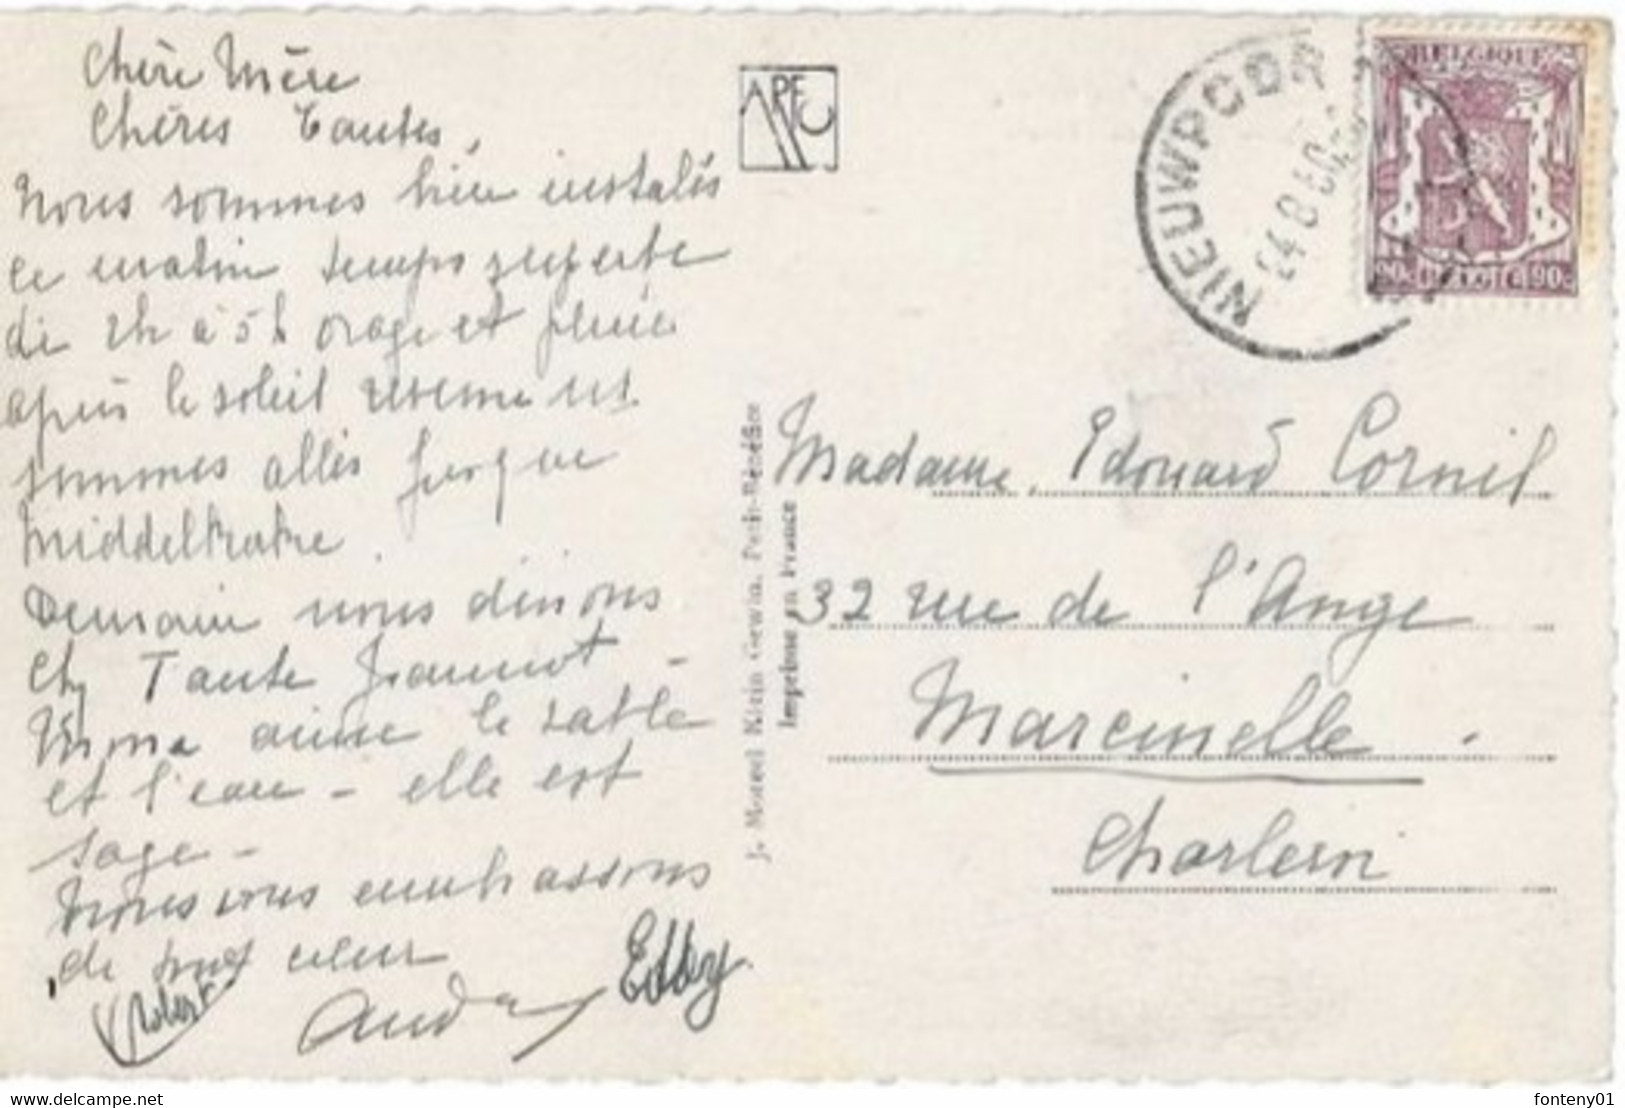 Chère Mère
Chères Tantes,
Nous sommes bien instalés
ce matin temps superbe
de 2h à 5h orage et pluie
après le soleil revenu et
sommes allés jusque
Middelkerke.
Demain nous dinons
chz Tante Jeannot -
aime le sable
et l'eau - elle est
sage -
Nous vous embrassons
de tout cœur
Robert
Andrey
Etty.
APEC
J. Morel Kirin Gewin. Petit-Bénéfice
Imprime en France
NIEUWPOORT
24 8 50
BELGIQUE
90c BELGIE 90c
Madame Edouard Cornil
32 rue de l'Ange
Marcinelle.
Charleroi
https://www.delcampe.net
fonteny01